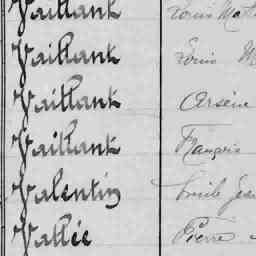 Vaillant Louis
Vaillant Louis
Vaillant Arsène
Vaillant François
Valentin Emile
Vallée Pierre